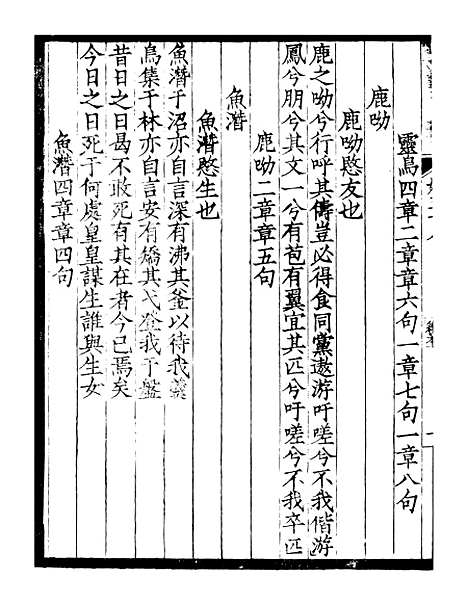 靈鳥四章二章章六句一章七句一章八句
鹿呦
鹿呦愍友也
鹿之呦兮行呼其儔豈必得食同黨遨游吁嗟兮不我偕游
鳳兮朋兮其文一兮有苞有翼宜其匹兮吁嗟兮不我卒匹
鹿呦二章章五句
魚潛
魚潛愍生也
魚潛于沼亦自言深有沸其釜以待我羹
鳥集于林亦自言安有矯其弋登我于盤
昔日之日曷不敢死有其在者今已焉矣
今日之日死于何處皇皇謀生誰與生女
魚潛四章章四句